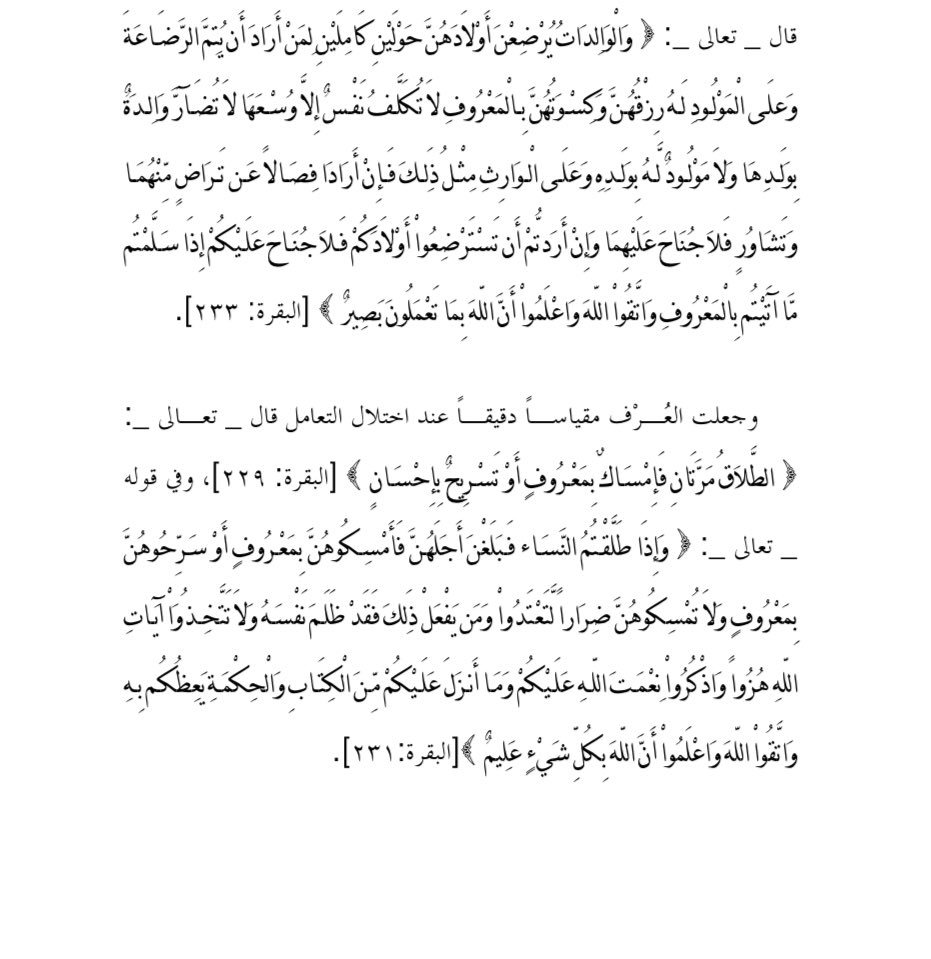 قال _ تعالى _: ﴿ وَالْوَالِدَاتُ يُرْضِعْنَ أَوْلَادَهُنَّ حَوْلَيْنِ كَامِلَيْنِ لِمَنْ أَرَادَ أَن يُتِمَّ الرَّضَاعَةَ
وَعَلَى الْمَوْلُودِ لَهُ رِزْقُهُنَّ وَكِسْوَتُهُنَّ بِالْمَعْرُوفِ لاَ تُكَلَّفُ نَفْسٌ إِلاَّ وُسْعَهَا لاَ تُضَآرَّ وَالِدَةٌ
بِوَلَدِهَا وَلاَ مَوْلُودٌ لَّهُ بِوَلَدِهِ وَعَلَى الْوَارِثِ مِثْلُ ذَلِكَ فَإِنْ أَرَادَا فِصَالاً عَن تَرَاضٍ مِّنْهُمَا
وَتَشَاوُرٍ فَلاَ جُنَاحَ عَلَيْهِمَا وَإِنْ أَرَدتُّمْ أَن تَسْتَرْضِعُواْ أَوْلاَدَكُمْ فَلاَ جُنَاحَ عَلَيْكُمْ إِذَا سَلَّمْتُم
مَّا آتَيْتُم بِالْمَعْرُوفِ وَاتَّقُواْ اللّهَ وَاعْلَمُواْ أَنَّ اللّهَ بِمَا تَعْمَلُونَ بَصِيرٌ ﴾ [البقرة: ٢٣٣].
وجعلت العُـرْف مقياسـاً دقيقـاً عند اختلال التعامل قال _ تعـالى _:
﴿ الطَّلَاقُ مَرَّتَانِ فَإِمْسَاكٌ بِمَعْرُوفٍ أَوْ تَسْرِيحٌ بِإِحْسَانٍ ﴾ [البقرة: ٢٢٩]، وفي قوله
_ تعالى _: ﴿ وَإِذَا طَلَّقْتُمُ النَّسَاء فَبَلَغْنَ أَجَلَهُنَّ فَأَمْسِكُوهُنَّ بِمَعْرُوفٍ أَوْ سَرِّحُوهُنَّ
بِمَعْرُوفٍ وَلاَ تُمْسِكُوهُنَّ ضِرَاراً لَّتَعْتَدُواْ وَمَن يَفْعَلْ ذَلِكَ فَقَدْ ظَلَمَ نَفْسَهُ وَلاَ تَتَّخِذُوَاْ آيَاتِ
اللّهِ هُزُواً وَاذْكُرُواْ نِعْمَتَ اللّهِ عَلَيْكُمْ وَمَا أَنزَلَ عَلَيْكُمْ مِّنَ الْكِتَابِ وَالْحِكْمَةِ يَعِظُكُم بِهِ
وَاتَّقُواْ اللّهَ وَاعْلَمُواْ أَنَّ اللّهَ بِكُلِّ شَيْءٍ عَلِيمٌ ﴾[البقرة:٢٣١].